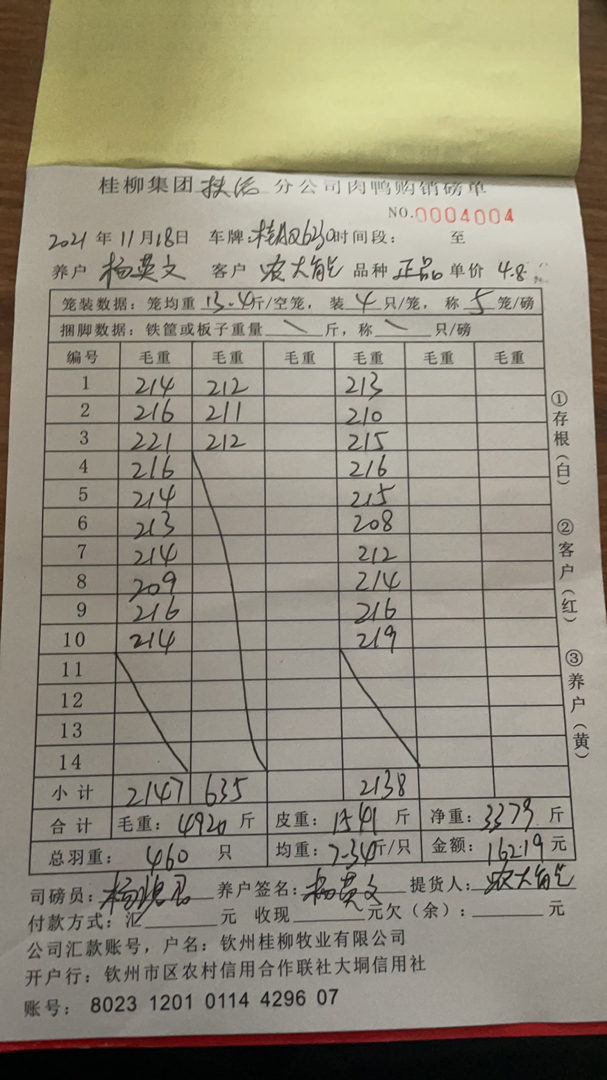 桂柳集团 分公司肉鸭购销磅单
NO.0004004
2021年11月18日 车牌: 时间段: 至
养户 杨英文 客户 农大能 品种 正品 单价 4.8
笼装数据:笼均重 13.4斤/空笼,装 4 只/笼,称 5 笼/磅
捆脚数据:铁筐或板子重量 \ 斤,称 \ 只/磅
编号 毛重 毛重 毛重 毛重 毛重 毛重
1 214 212 213
2 216 211 210
3 221 212 215
4 216 216
5 214 215
6 213 208
7 214 212
8 209 214
9 216 216
10 214 219
11
12
13
14
小计 2147 635 2138
合计 毛重: 4920 斤 皮重: 1541 斤 净重: 3379 斤
总羽重: 460 只 均重: 7.34斤/只 金额: 16219 元
司磅员: 养户签名: 杨英文 提货人: 农大能
付款方式:汇 元 收现 元欠(余): 元
公司汇款账号,户名:钦州桂柳牧业有限公司
开户行:钦州市区农村信用合作联社大垌信用社
账号: 8023 1201 0114 4296 07
①存根(白)
②客户(红)
③养户(黄)